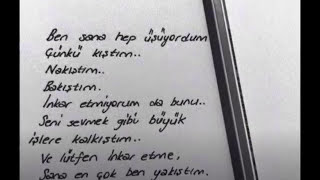 Ben sana hep üşüyordum
Çünkü kıştım..
Nakıştım..
Bakıştım.
İnkar etmiyorum da bunu..
Seni sevmek gibi büyük
işlere kalkıştım..
Ve lütfen inkar etme,
Sana en çok ben yakıştım.